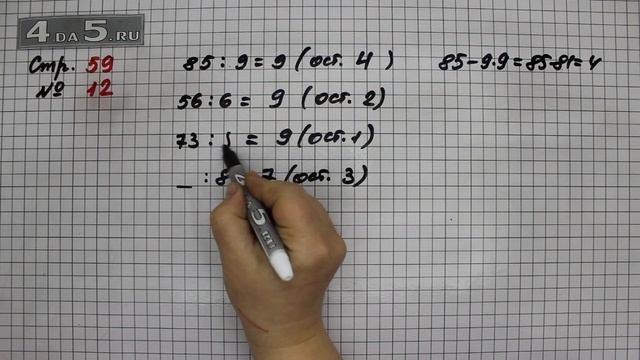 4DA5.RU
Стр. 59
№ 12
85 : 9 = 9 (ост. 4)
85-9·9=85-81=4
56 : 6 = 9 (ост. 2)
73 : = 9 (ост. 1)
_ : 8 7 (ост. 3)